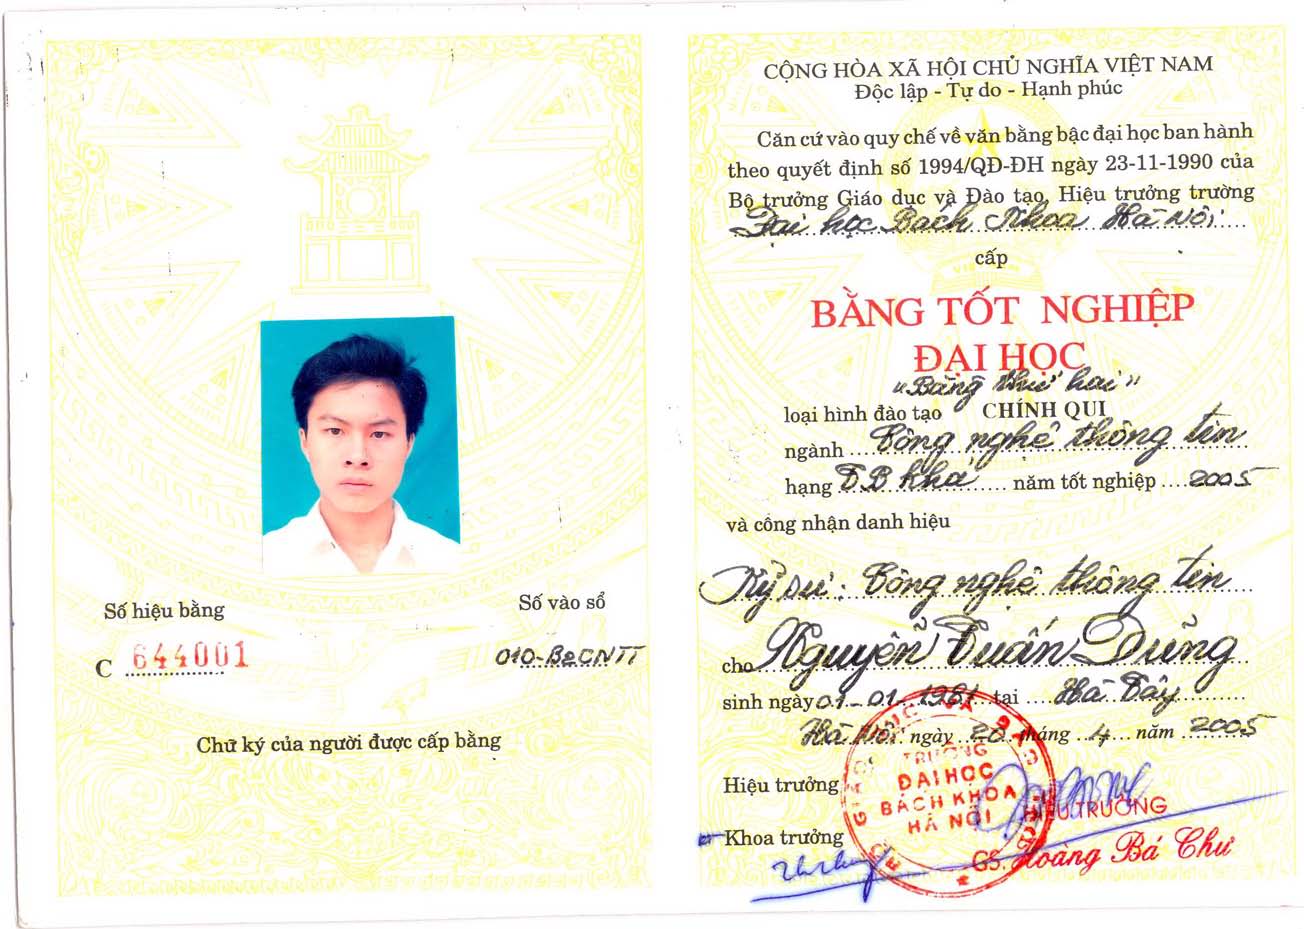 Số hiệu bằng
C 644001
Số vào sổ
010-B2CNTT
Chữ ký của người được cấp bằng
CỘNG HÒA XÃ HỘI CHỦ NGHĨA VIỆT NAM
Độc lập - Tự do - Hạnh phúc
Căn cứ vào quy chế về văn bằng bậc đại học ban hành
theo quyết định số 1994/QĐ-ĐH ngày 23-11-1990 của
Bộ trưởng Giáo dục và Đào tạo, Hiệu trưởng trường
Đại học Bách Khoa Hà Nội
cấp
BẰNG TỐT NGHIỆP
ĐẠI HỌC
"Bằng thứ hai"
loại hình đào tạo CHÍNH QUI
ngành Công nghệ thông tin
hạng TB khá năm tốt nghiệp 2005
và công nhận danh hiệu
Kỹ sư: Công nghệ thông tin
cho Nguyễn Tuấn Dũng
sinh ngày 01-01-1981 tại Hà Tây
Hà Nội ngày 20 tháng 4 năm 2005
Hiệu trưởng
TRƯỜNG
ĐẠI HỌC
BÁCH KHOA
HÀ NỘI
HIỆU TRƯỞNG
Khoa trưởng
GS. Hoàng Bá Chư